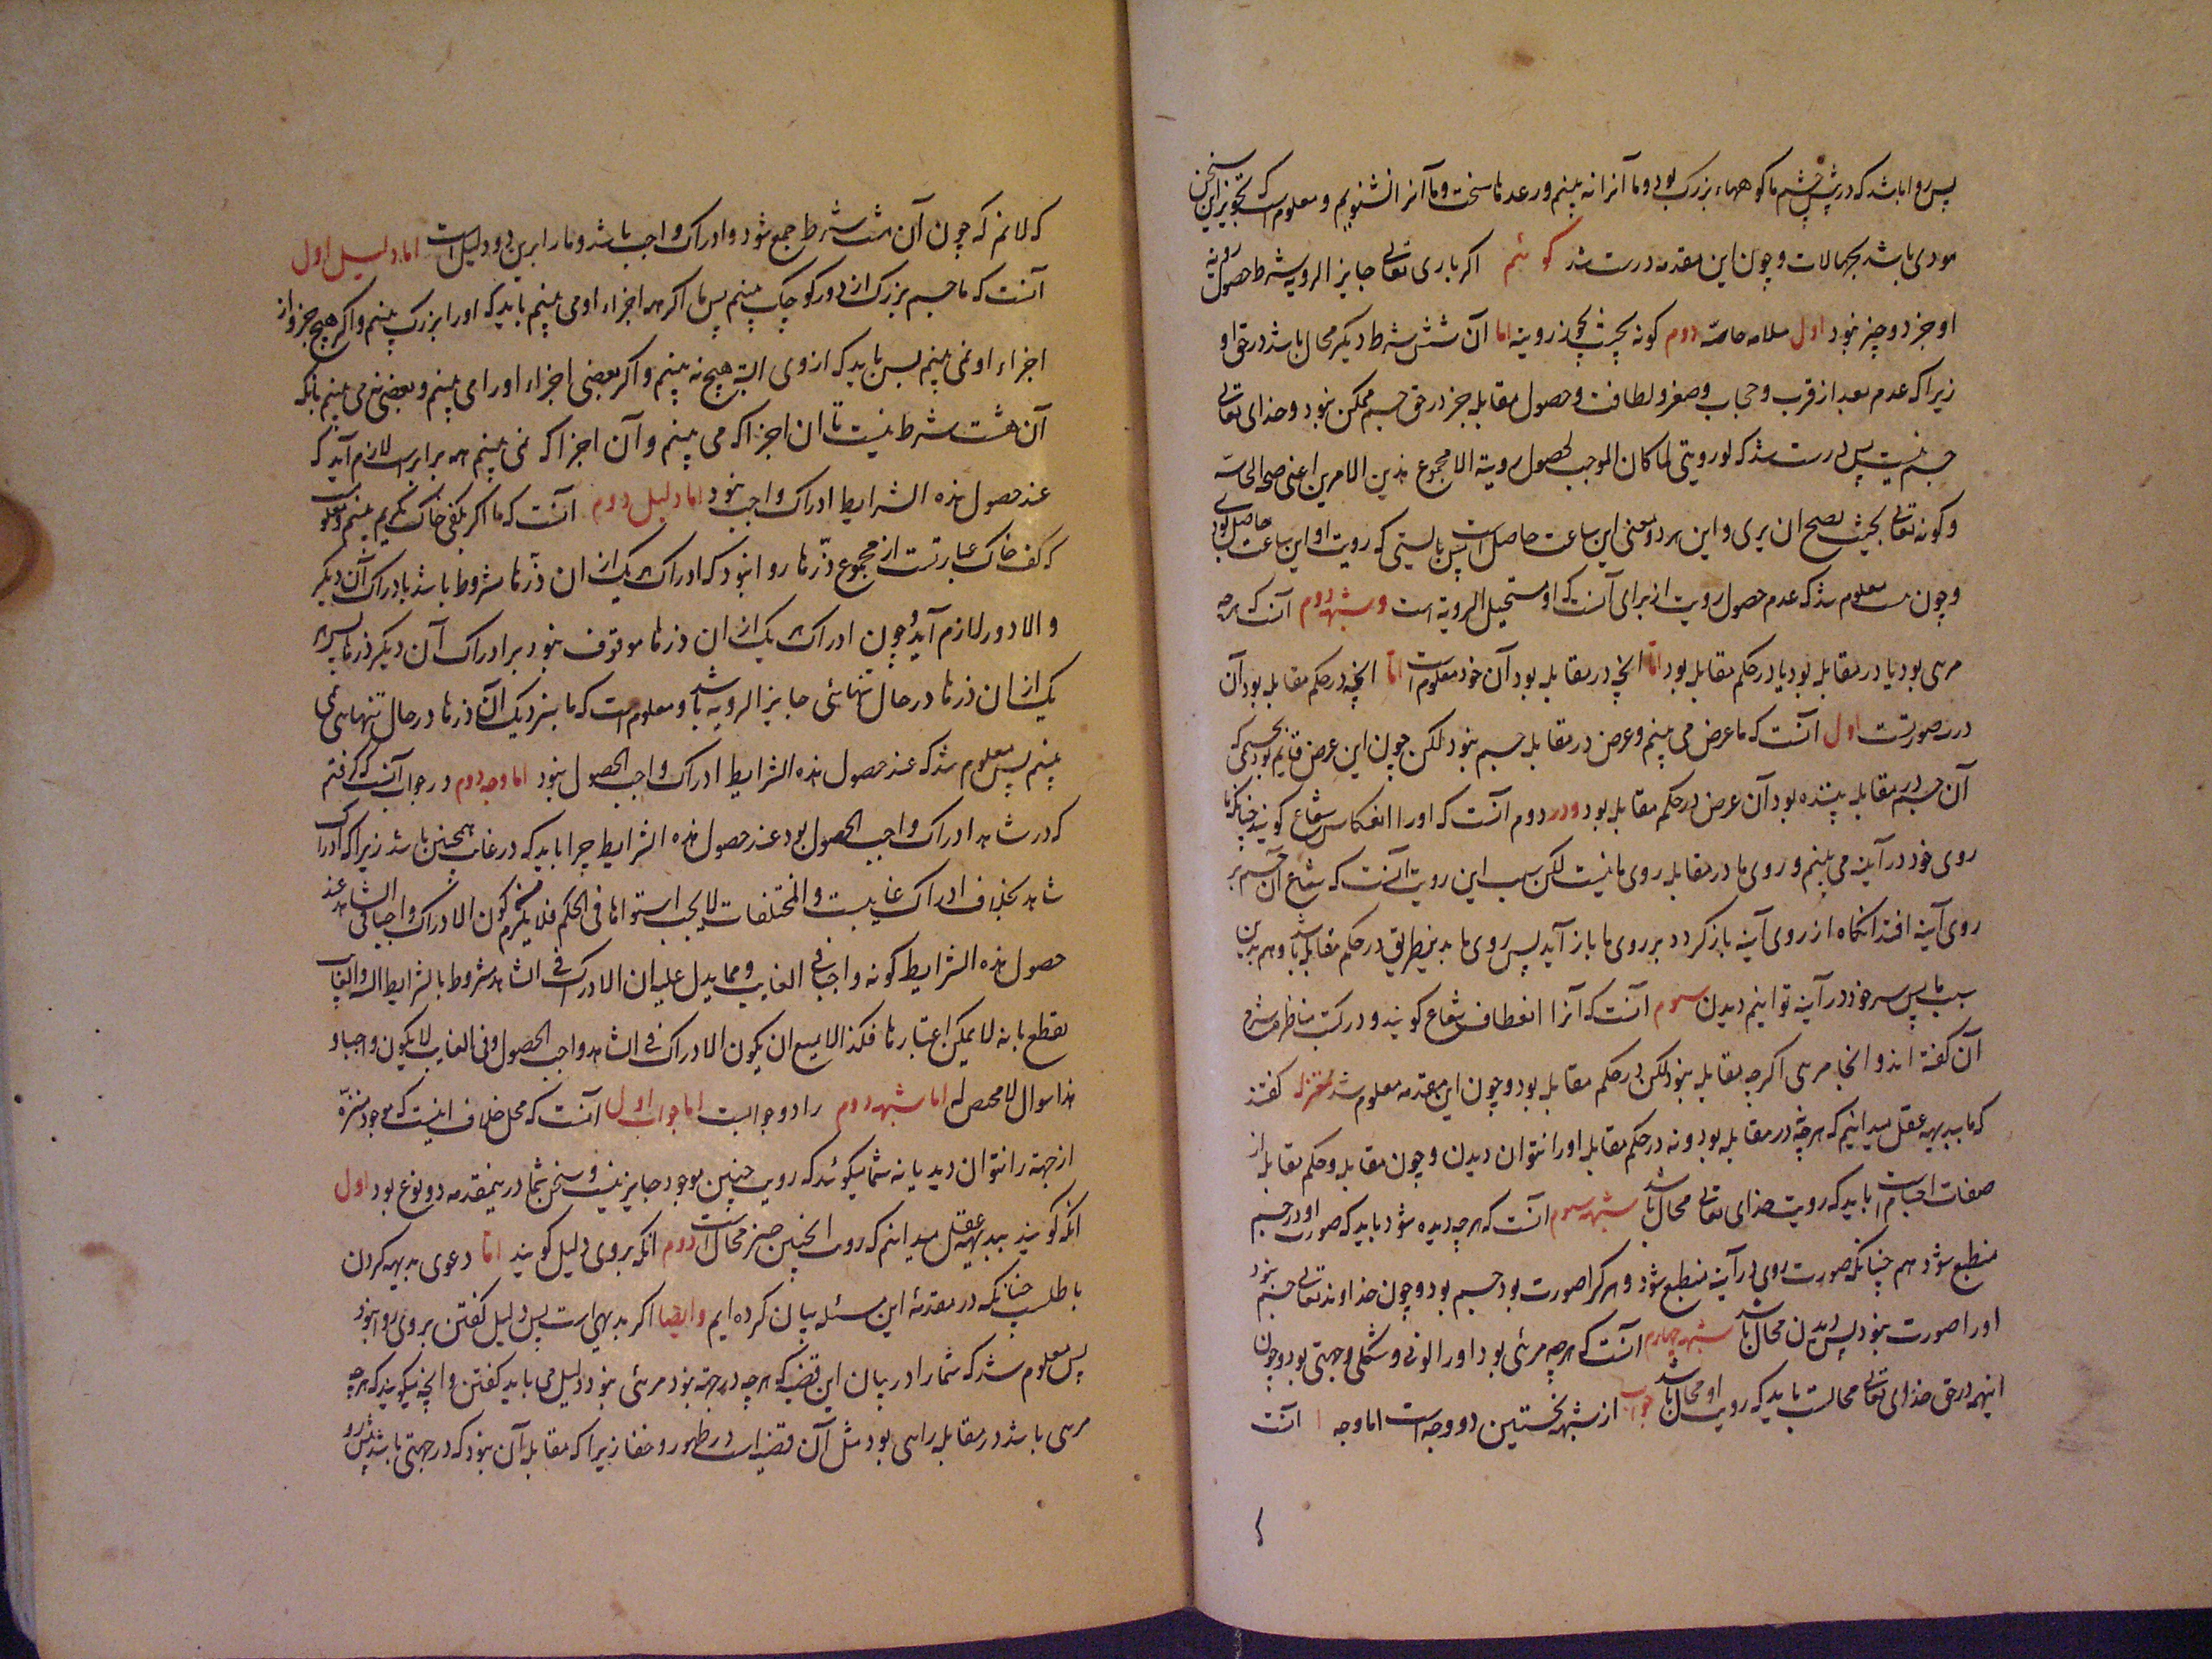 پس روا باشد که در پیش چشم ما کوههاء بزرک بود و ما آنرا نه بینیم و رعدها سخت و ما آنرا نشنویم و معلوم است که تجویز این سخن
مودی باشد بجهالات و چون این مقدمه درست شد کوئیم اکر باری تعالی جایز الرویه شرط حصول رویة
او جز دو چیز نبود اول سلامه حاسّه دوم کونه بحیث یجوز رویته اما آن شش شرط دیکر محال باشد در حق او
زیرا که عدم بعد از قرب و حجاب و صغر و لطافت و حصول مقابله جز در حق جسم ممکن نبود و خدای تعالی
جسم نیست پس درست شد که لو رویتی لما کان الموجب لحصول رویته الا مجموع هذین الامرین اعنی صحه الحاسّه
و کونه تعالی بحیث یصح ان یری و این هر دو معنی این ساعت حاصل است پس بایستی که رویت او این ساعت حاصل بودی
و چون نیست معلوم شد که عدم حصول رویت از برای آنست که او مستحیل الرویه است و شبهه دوم آنست که هرچه
مریی بود یا در مقابله بود یا در حکم مقابله بود امّا انچه در مقابله بود آن خود معلوم است امّا انچه در حکم مقابله بود آن
در سه صورتست اول آنست که ما عرض می بینیم و عرض در مقابله جسم نبود لکن چون این عرض قایم بود بجسمی که
آن جسم در مقابله بیننده بود آن عرض در حکم مقابله بود و در دوم آنست که او را انعکاس شعاع کویند چنانکه ما
روی خود در آینه می بینیم و روی ما در مقابله روی ما نیست لکن سبب این رویت آنست که شعاع از چشم بر
روی آینه افتد انکاه از روی آینه باز کردد بر روی ما باز آید پس روی ما بدین طریق در حکم مقابله باشد و هم بدین
سبب ما پس سر خود در آینه توانیم دیدن سوم آنست که آنرا انعطاف شعاع کویند و در کتب مناظر شرح
آن کفته اند و انجا مریی اکرچه مقابله نبود لکن در حکم مقابله بود و چون این مقدمه معلوم شد معتزله کفتند
که ما ببدیهه عقل میدانیم که هرچه در مقابله بود و نه در حکم مقابله او را نتوان دیدن و چون مقابله و حکم مقابله از
صفات اجسام است باید که رویت خدای تعالی محال باشد شبهه سوم آنست که هرچه دیده شود باید که صورت او در جسم
منطبع شود هم چنانکه صورت روی در آینه منطبع شود و هر کرا صورت بود جسم بود و چون خداوند تعالی جسم نبود
او را صورت نبود پس دیدن محال باشد شبهه چهارم آنست که هرچه مرئی بود او را لونی و شکلی و جهتی بود و چون
اینهمه در حق خدای تعالی محالست باید که رویت او محال باشد جواب از شبهه نخستین دو وجه است اما وجه ا آنست
که لانم که چون آن هشت شرط جمع شود و ادراک واجب باشد و ما را برین دو دلیل است اما دلیل اول
آنست که ما جسم بزرک از دور کوچک بینیم پس ما اکر همه اجزاء او می بینیم باید که او را بزرک بینیم و اکر هیچ جزو از
اجزاء او نمی بینیم پس باید که از وی البته هیچ نه بینیم و اکر بعضی اجزاء او را می بینیم و بعضی نمی بینیم بانکه
آن هشت شرط نسبت با ان اجزا که می بینیم و آن اجزا که نمی بینیم همه برابرست لازم آید که
عند حصول هذه الشرایط ادراک واجب نبود اما دلیل دوم آنست که ما اکر بکفی خاک نکریم بینیم و معلومست
که کف خاک عبارتست از مجموع ذرّها روا نبود که ادراک هر یک از ان ذرّها مشروط باشد بادراک آن دیکر
و الا دور لازم آید و چون ادراک هر یک از ان ذرها موقوف نبود بر ادراک آن دیکر ذرها پس هر
یک از ان ذرها در حال تنهائی جایز الرویه باشد و معلوم است که ما بنزدیک آن ذرها در حال تنهایی نمی
بینیم پس معلوم شد که عند حصول هذه الشرایط ادراک واجب الحصول نبود اما وجه دوم در جواب آنست که کرفتم
که در شاهد ادراک واجب الحصول بود عند حصول هذه الشرایط چرا باید که در غایب همچنین باشد زیرا که ادراک
شاهد بخلاف ادراک غایبست و المختلفات لا یجب استواها فی الحکم فلا یلزم من کون الادراک واجبا فی الشاهد عند
حصول هذه الشرایط کونه واجبا فی الغایب و مما یدل علیه ان الادراک فی الشاهد مشروط بالشرایط الـ و الغایب
نقطع بانه لا یمکن اعتبارها فکذا لا یمنع ان یکون الادراک فی الشاهد واجب الحصول و فی الغایب لا یکون واجبا و
هذا سوال لا محص له اما شبهه دوم را دو جوابست اما جواب اول آنست که محل خلاف اینست که موجود منزّه
از جهة را نتوان دید یا نه شما میکوئید که رویت چنین موجود جایز نیست و سخن شما درین مقدمه دو نوع بود اول
انکه کویند ببدیهه عقل میدانیم که رویت انچنین چیز محال است دوم انکه بر وی دلیل کویند امّا دعوی بدیهه کردن
باطلست چنانکه در مقدمه این مسئله بیان کرده ایم و ایضا اکر بدیهی است پس دلیل کفتن بر وی روا نبود
پس معلوم شد که شما را در بیان این قضیه که هرچه در جهة نبود مرئی نبود دلیل می باید کفتن و انچه میکویید که هرچه
مریی باشد در مقابله رایی بود مثل آن قضیه است در ظهور و خفا زیرا که مقابله آن نبود که در جهتی باشد پیش رو